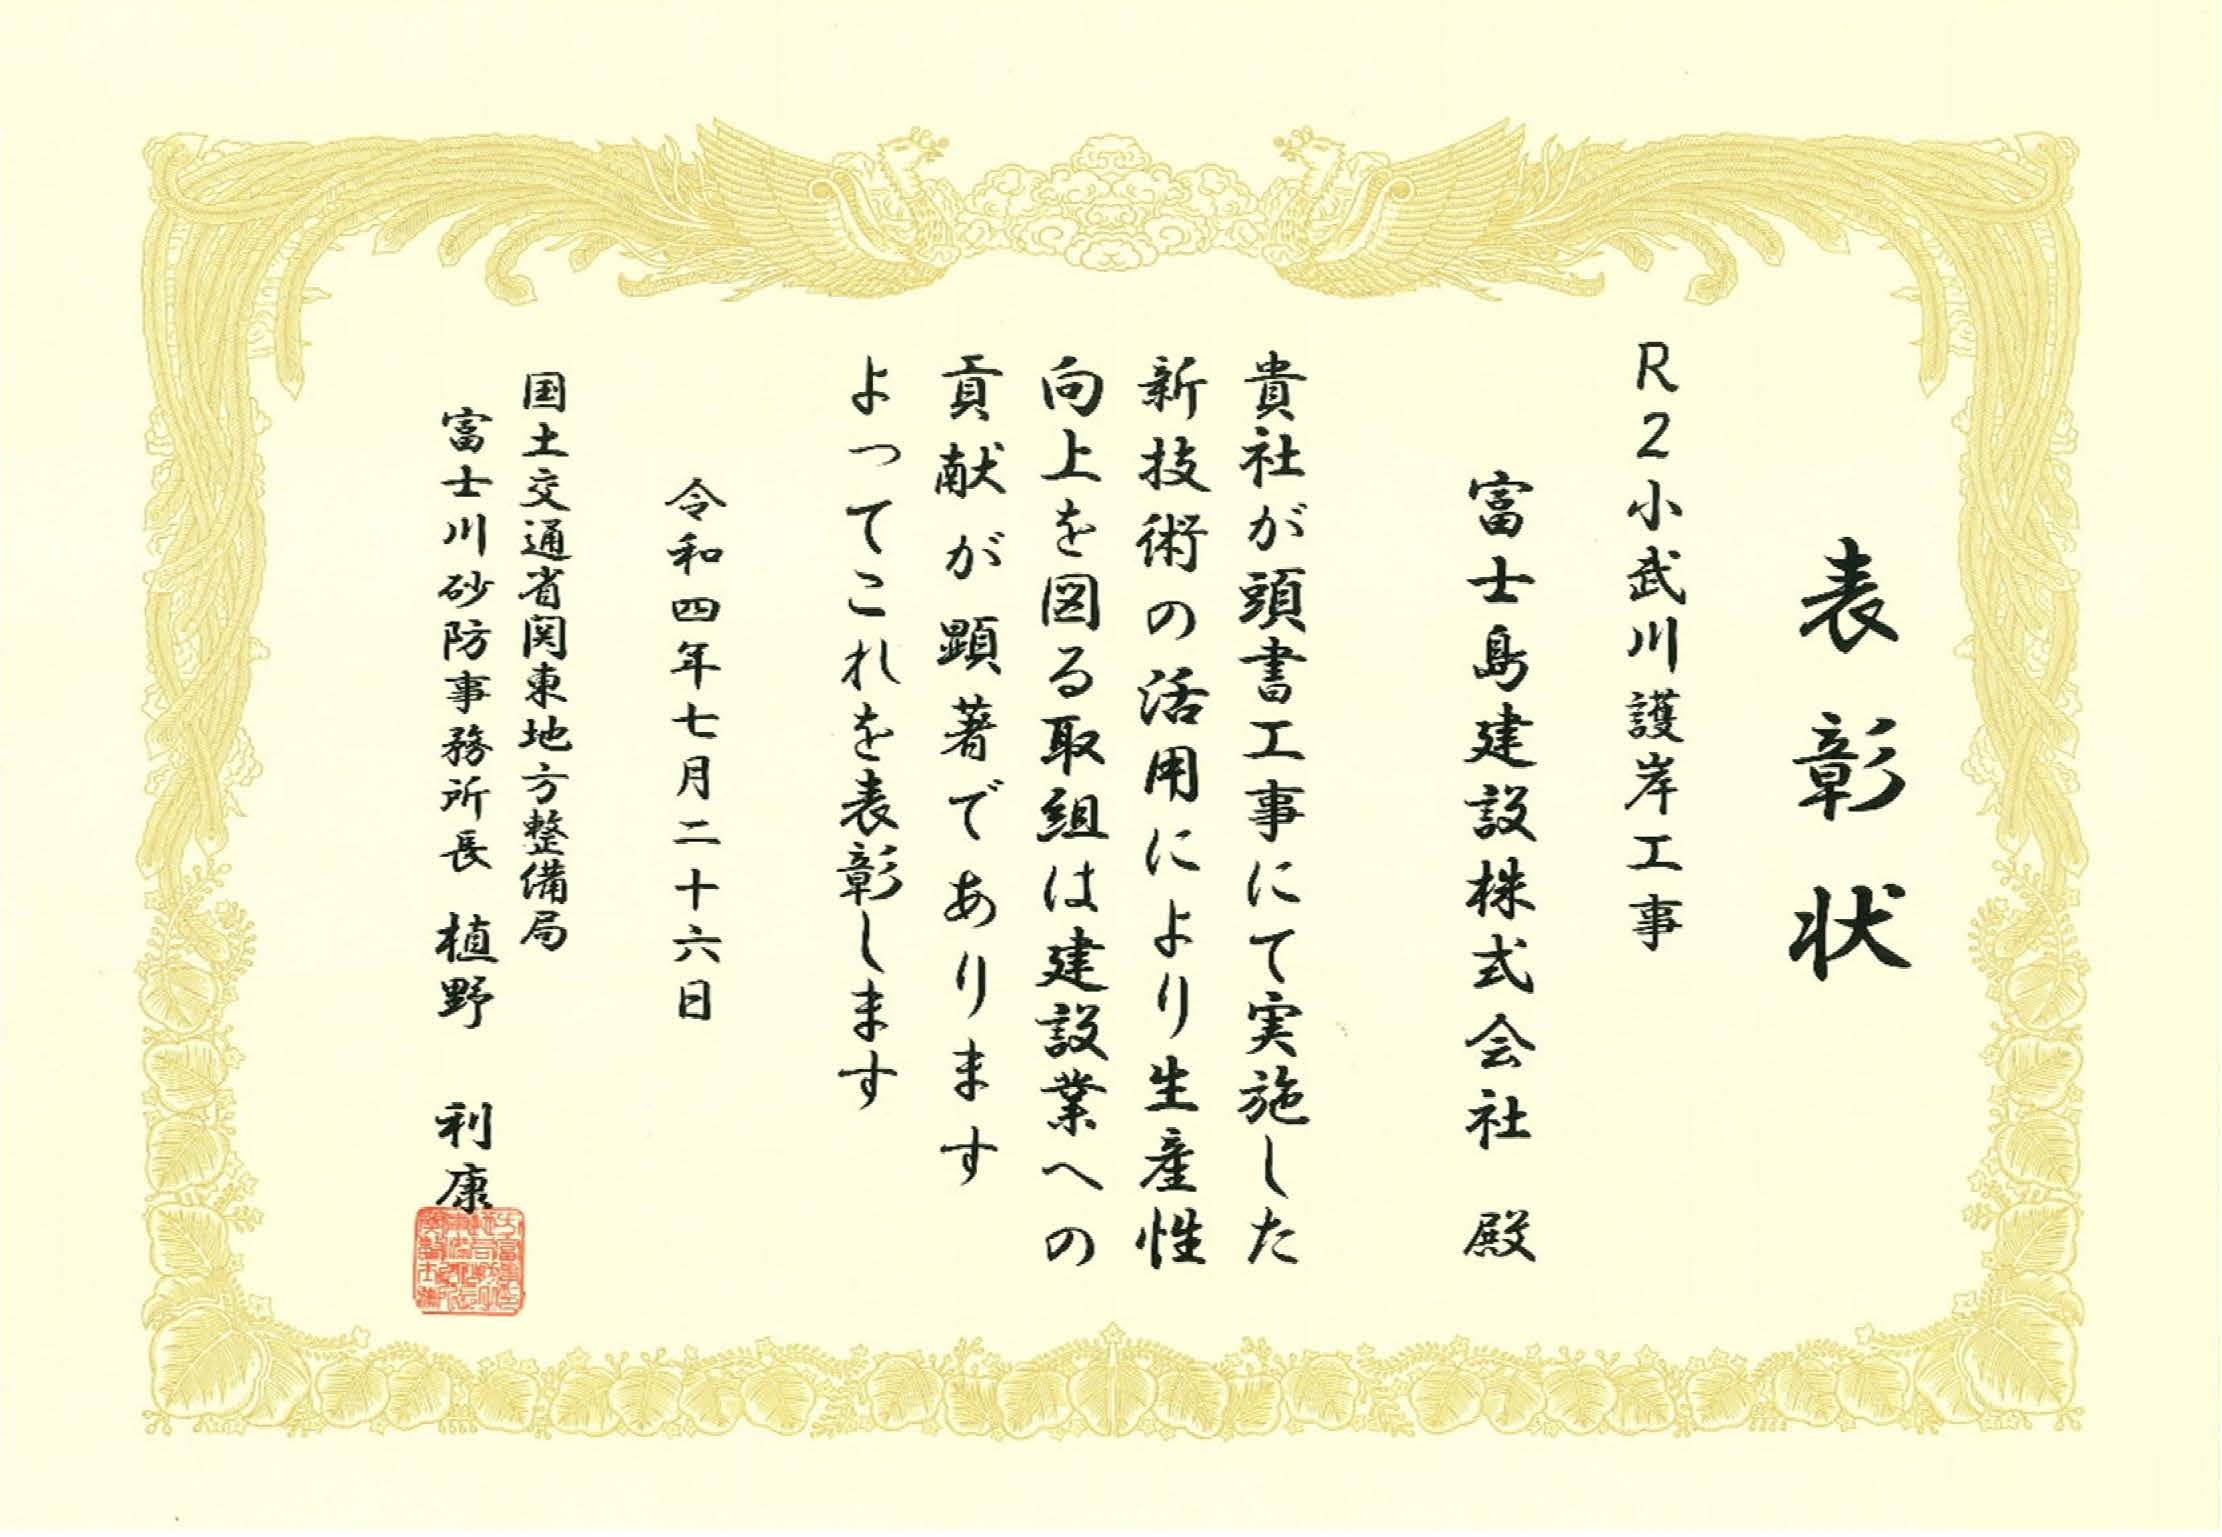 表彰状
R2小武川護岸工事
富士島建設株式会社 殿
貴社が頭書工事にて実施した
新技術の活用により生産性
向上を図る取組は建設業への
貢献が顕著であります
よってこれを表彰します
令和四年七月二十六日
国土交通省関東地方整備局
富士川砂防事務所長 植野 利康